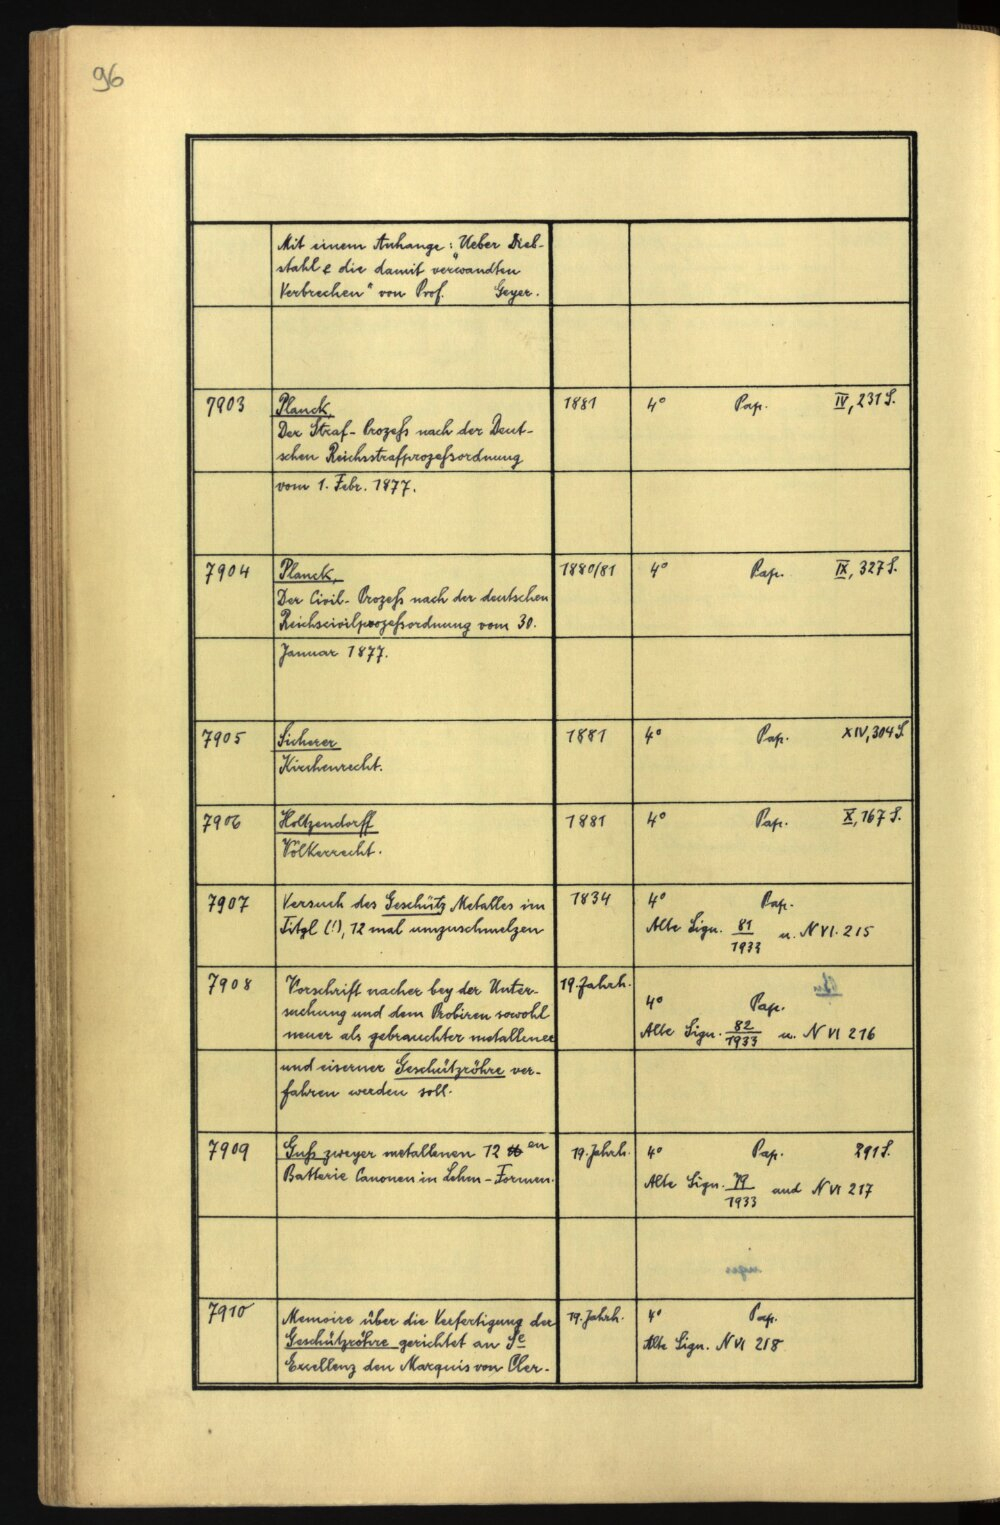 96
Mit einem Anhange: "Ueber Dieb-
stahl & die damit verwandten
Verbrechen" von Prof. Geyer.
7903 Planck, 1881 4° Pap. IV, 231 S.
Der Straf-Prozeß nach der Deut-
schen Reichsstrafprozeßordnung
vom 1. Febr. 1877.
7904 Planck, 1880/81 4° Pap. IX, 327 S.
Der Civil-Prozeß nach der deutschen
Reichscivilprozeßordnung vom 30.
Januar 1877.
7905 Sicherer 1881 4° Pap. XIV, 304 S.
Kirchenrecht.
7906 Holtzendorff 1881 4° Pap. X, 167 S.
Völkerrecht.
7907 Versuch des Geschütz Metalles im 1834 4° Pap.
Titgl (!), 12 mal umzuschmelzen Alte Sign. 81/1933 u. N VI. 215
7908 Vorschrift nacher bey der Unter- 19. Jahrh.
suchung und dem Probiren sowohl 4° Pap.
neuer als gebrauchter metallener Alte Sign. 82/1933 u. N VI 216
und eiserner Geschützröhre ver-
fahren werden soll.
7909 Guß zweyer metallenen 12 en 19. Jahrh. 4° Pap. 291 S.
Batterie Canonen in Lehm-Formen. Alte Sign. 79/1933 and N VI 217
7910 Memoire über die Verfertigung der 19. Jahrh. 4° Pap.
Geschützröhre gerichtet an Se Alte Sign. N VI 218
Excellenz den Marquis von Cler-